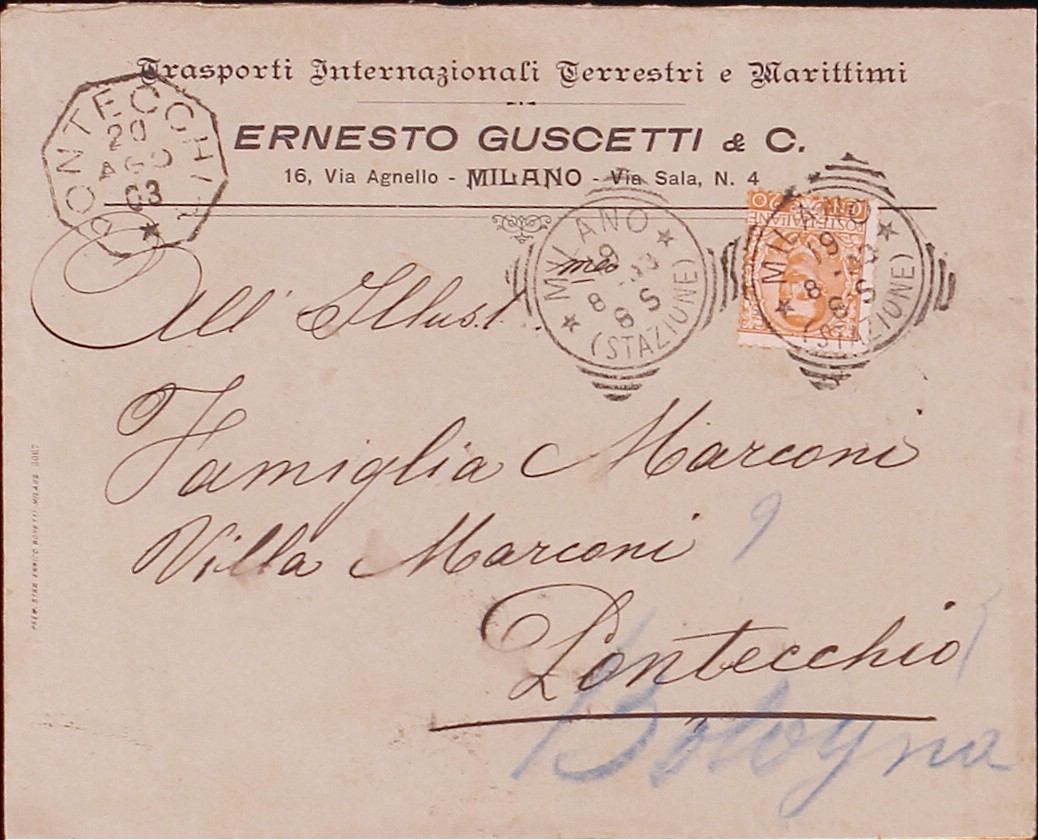 Trasporti Internazionali Terrestri e Marittimi
ERNESTO GUSCETTI & C.
16, Via Agnello - MILANO - Via Sala, N. 4
PONTECCHIO
20
AGO
03
MILANO
19
8 - 03
8 S
(STAZIONE)
MILANO
19
8 - 03
8 S
(STAZIONE)
All' Illus.
Famiglia Marconi
Villa Marconi
9
Pontecchio
Bologna